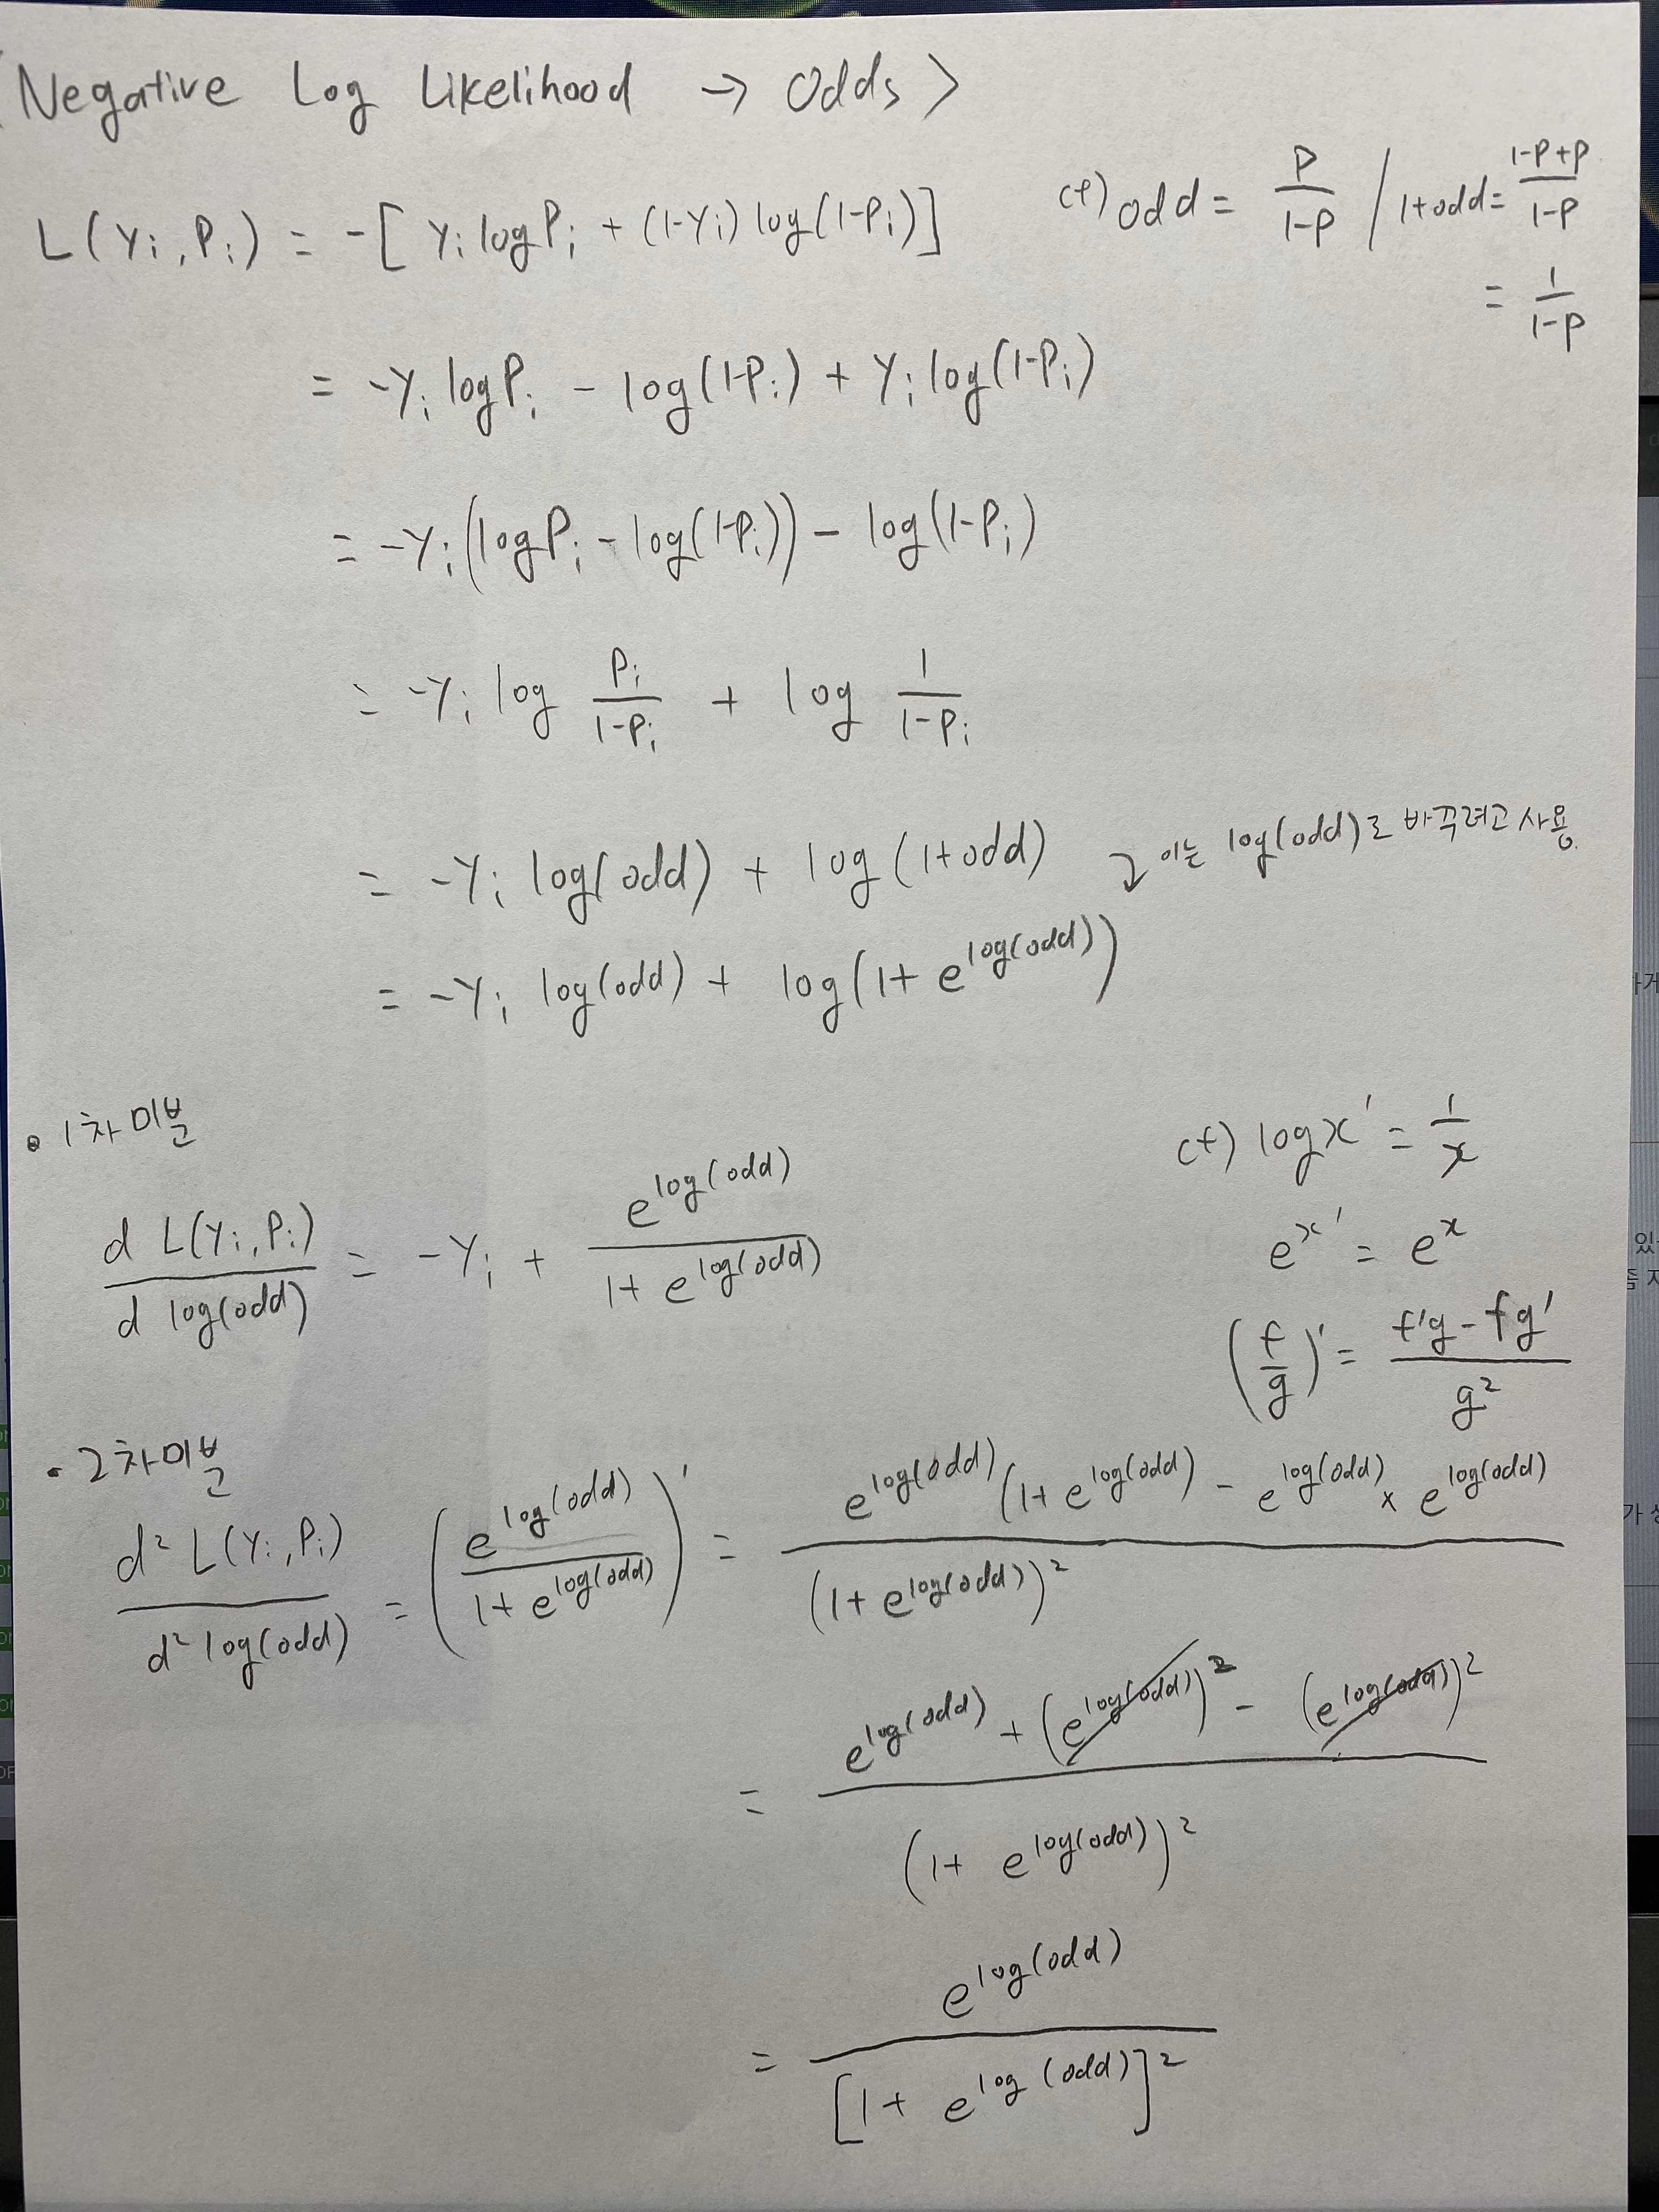 Negative Log Likelihood → Odds >
L(Yi, Pi) = -[ Yi logPi + (1-Yi) log(1-Pi)]
cf) odd = P/(1-P) / 1+odd = (1-P+P)/(1-P)
= 1/(1-P)
= -Yi logPi - log(1-Pi) + Yi log(1-Pi)
= -Yi(logPi - log(1-Pi)) - log(1-Pi)
= -Yi log Pi/(1-Pi) + log 1/(1-Pi)
= -Yi log(odd) + log(1+odd) 이는 log(odd)로 바꾸려고 사용.
= -Yi log(odd) + log(1+ e^log(odd))
• 1차미분
cf) logx' = 1/x
d L(Yi, Pi) / d log(odd) = -Yi + e^log(odd) / 1+ e^log(odd)
e^x' = e^x
(f/g)' = (f'g - fg') / g²
• 2차미분
d² L(Yi, Pi) / d² log(odd) = (e^log(odd) / 1+ e^log(odd))' = e^log(odd) (1+ e^log(odd) - e^log(odd) x e^log(odd) / (1+ e^log(odd))²
= e^log(odd) + (e^log(odd))² - (e^log(odd))² / (1+ e^log(odd))²
= e^log(odd) / [1+ e^log(odd)]²